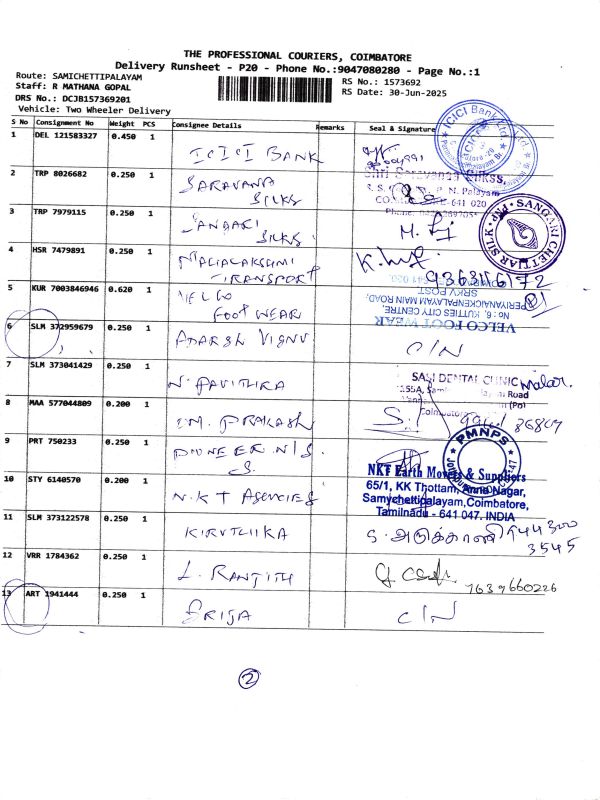 THE PROFESSIONAL COURIERS, COIMBATORE
Delivery Runsheet - P20 - Phone No.:9047080280 - Page No.:1
Route: SAMICHETTIPALAYAM
RS No.: 1573692
Staff: R MATHANA GOPAL
RS Date: 30-Jun-2025
DRS No.: DCJB157369201
Vehicle: Two Wheeler Delivery
S No Consignment No Weight PCS Consignee Details Remarks Seal & Signature
1 DEL 121583327 0.450 1 ICICI BANK
ICICI Bank Ltd.
2 TRP 8026682 0.250 1 SARAVANA SILKS
Shri Saravana Silkss,
641 020
3 TRP 7979115 0.250 1 SANGARI SILKS
SANGARI CHETTIAR SILK
4 HSR 7479891 0.250 1 MAHALAKSHMI TRANSPORT
5 KUR 7003846946 0.620 1 VELCO FOOT WEAR
VELCO FOOT WEAR
No : 6, KUTTIES CITY CENTRE,
PERIYANAICKENPALAYAM MAIN ROAD,
SRKV POST
6 SLM 372959679 0.250 1 ADARSH VISNU C/N
7 SLM 373041429 0.250 1 N. PAVITHRA
SASI DENTAL CLINIC Malar.
Road
Coimbatore
8 MAA 577044809 0.200 1 M. PRAKASH
9 PRT 750233 0.250 1 PIONEER N/S
PMNPS
10 STY 6140570 0.200 1 N.K.T AGENCIES
NKT Earth Movers & Suppliers
65/1, KK Thottam, Anna Nagar,
Samychettipalayam, Coimbatore,
Tamilnadu - 641 047. INDIA
11 SLM 373122578 0.250 1 KIRUTHIKA
3545
12 VRR 1784362 0.250 1 L. RANJITH
7639660226
13 ART 1941444 0.250 1 SRIJA C/N
2